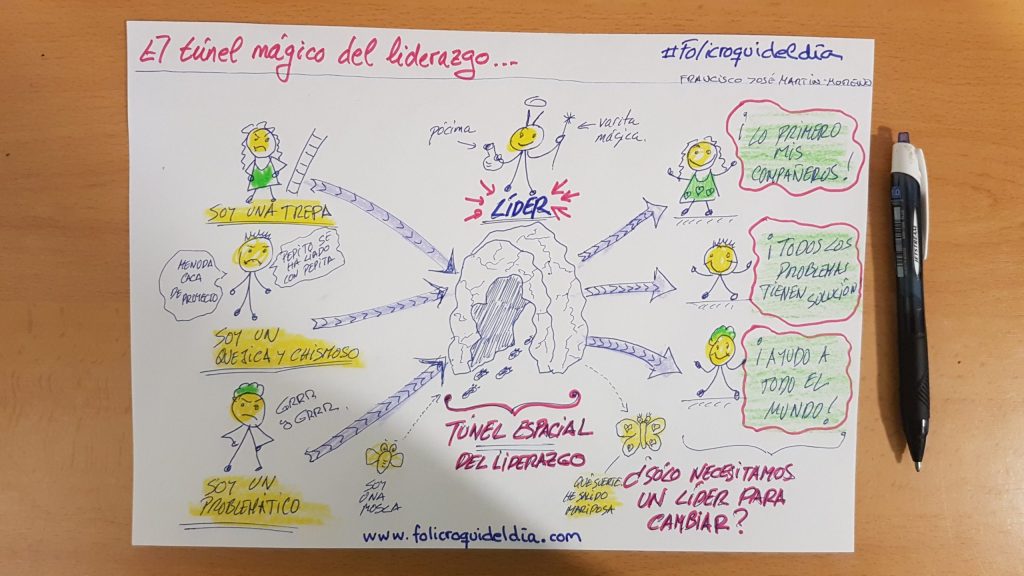 El túnel mágico del liderazgo...
#Folicroquideldía
FRANCISCO JOSÉ MARTÍN-MORENO
pócima
varita
mágica.
LÍDER
SOY UNA TREPA
¡LO PRIMERO
MIS
COMPAÑEROS!
MENUDA
CACA
DE PROYECTO
PEPITO SE
HA LIADO
CON PEPITA
SOY UN
QUEJICA Y CHISMOSO
¡TODOS LOS
PROBLEMAS
TIENEN SOLUCIÓN!
GRRR
GRRR.
SOY UN
PROBLEMÁTICO
¡AYUDO A
TODO EL
MUNDO!
TÚNEL ESPACIAL
DEL LIDERAZGO
SOY
UNA
MOSCA
QUÉ SUERTE
HE SALIDO
MARIPOSA
¿SÓLO NECESITAMOS
UN LÍDER PARA
CAMBIAR?
www.folicroquideldia.com